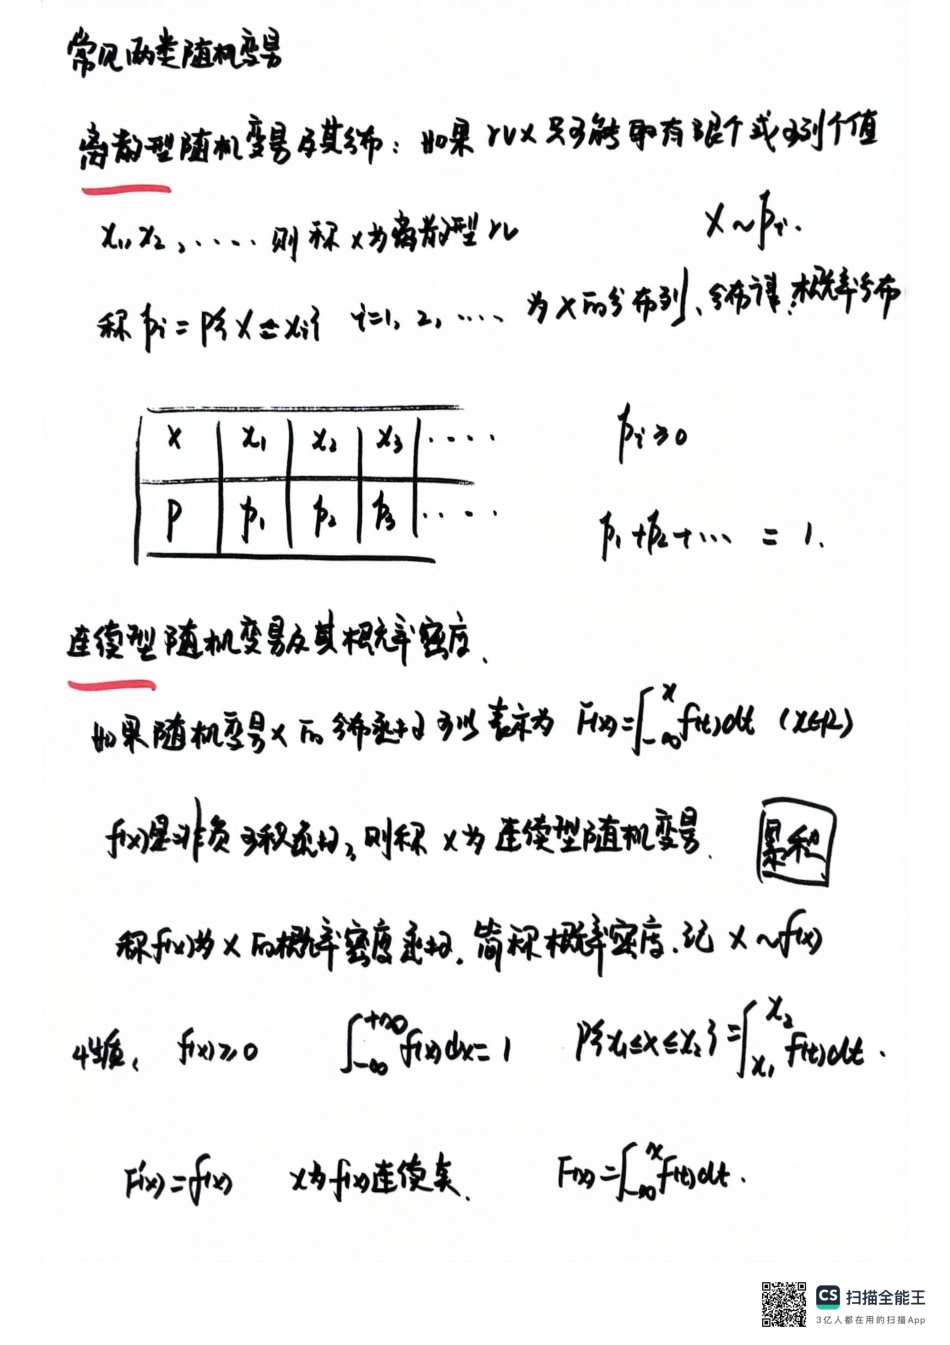 常见两类随机变量
离散型随机变量及其分布：如果 rv X 只可能取有限个或可列个值
x₁, x₂, ..... 则称 X 为离散型 rv X ~ pᵢ.
称 pᵢ = P{X = xᵢ} i=1, 2, ..... 为 X 的分布列、分布律、概率分布
X x₁ x₂ x₃ ....
P p₁ p₂ p₃ ....
pᵢ ≥ 0
p₁ + p₂ + ... = 1.
连续型随机变量及其概率密度.
如果随机变量 X 的分布函数可以表示为 F(x) = ∫_{-∞}^{x} f(t)dt (x∈R)
f(x)是非负可积函数, 则称 X 为连续型随机变量. 累积
称 f(x) 为 X 的概率密度函数. 简称概率密度. 记 X ~ f(x)
4性质: f(x) ≥ 0 ∫_{-∞}^{+∞} f(x)dx = 1 P{x₁ ≤ X ≤ x₂} = ∫_{x₁}^{x₂} f(t)dt.
F'(x) = f(x) x为f(x)连续点. F(x) = ∫_{-∞}^{x} f(t)dt.
CS 扫描全能王
3亿人都在用的扫描App